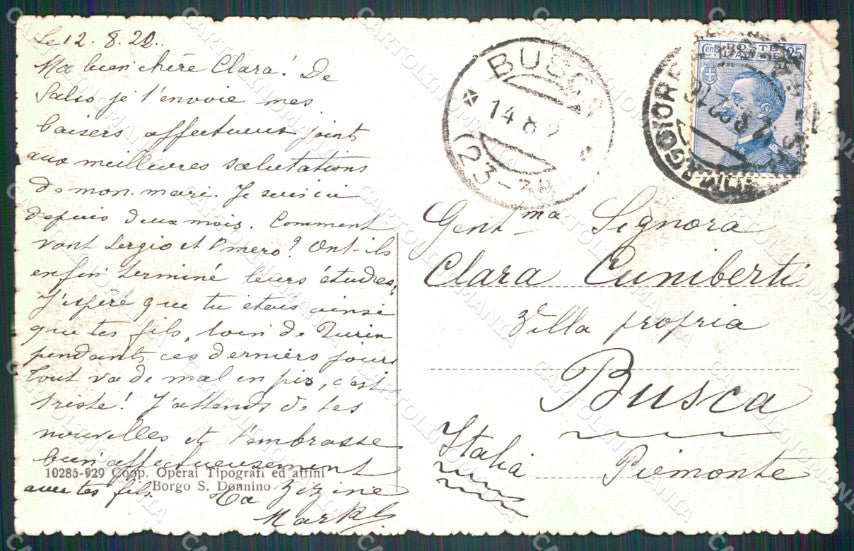 Le 12. 8. 22.
Ma bien chère Clara! De
Salso je t'envoie mes
baisers affectueux joints
aux meilleures salutations
de mon mari. Je suis ici
depuis deux mois. Comment
vont Sergio et Omero? Ont-ils
enfin terminé leurs études?
J'espère que tu étais ainsi
que tes fils, loin de Turin
pendants ces derniers jours
tout va de mal en pis, c'est
triste! J'attends de tes
nouvelles et t'embrasse
bien affectueusement
avec tes fils. Ta Zizine
10285-929 Coop. Operai Tipografi ed affini
Borgo S. Donnino
BUSCA
14.8.2
(23-
GGIORE
POSTE
25
Gent.ma Signora
Clara Cuniberti
Villa propria
Busca
Italia Piemonte
CARTOLINOMANIA